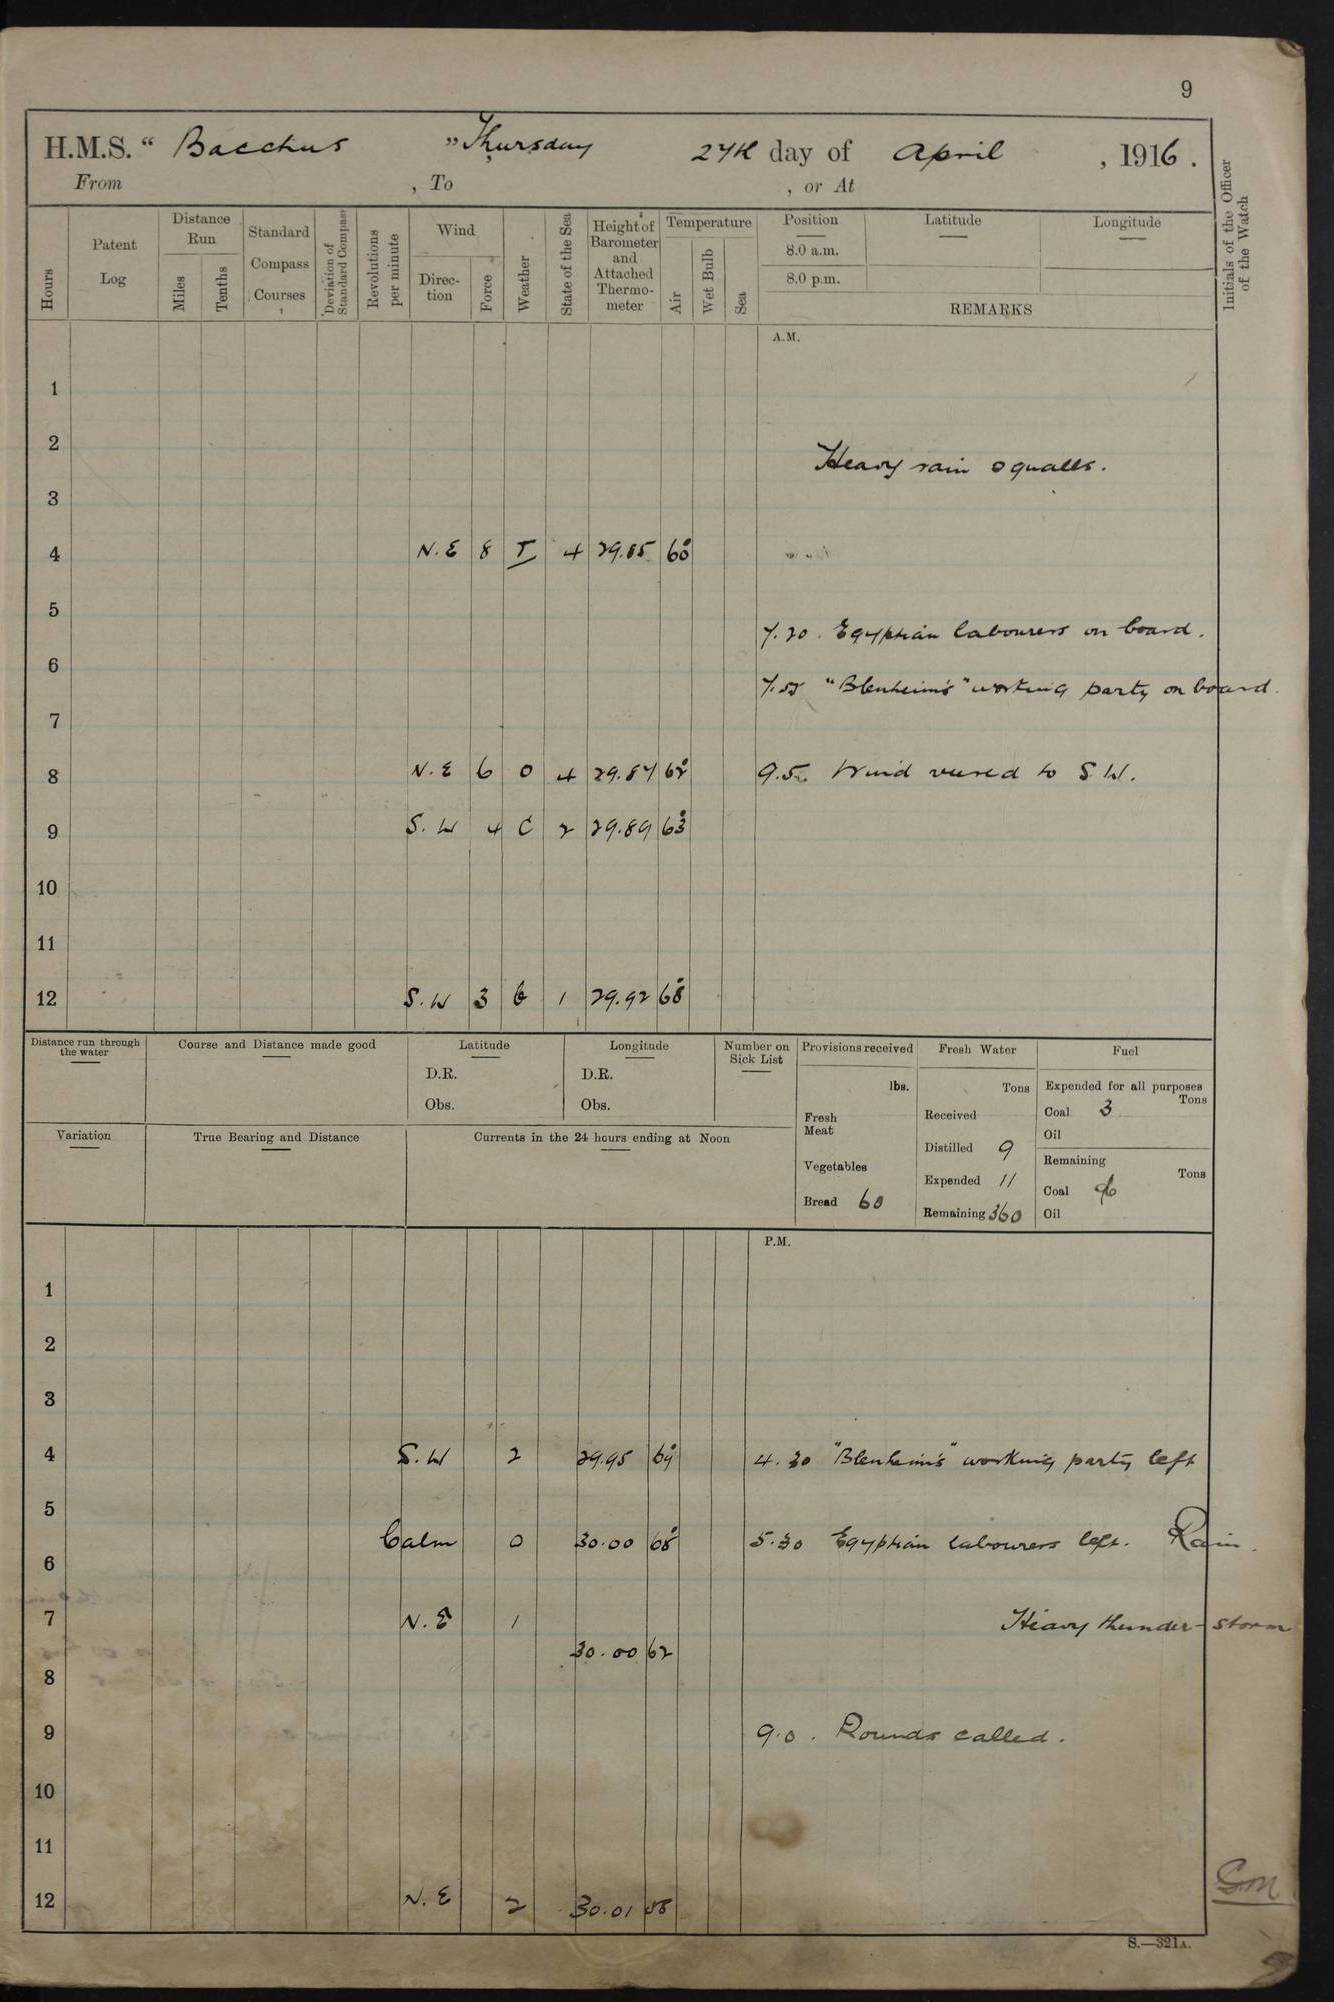 9
H.M.S. “ Bacchus ” Thursday 27th day of April , 1916 .
From , To , or At
Hours
Patent Log
Distance Run
Miles
Tenths
Standard Compass Courses
Deviation of Standard Compass
Revolutions per minute
Wind
Direction
Force
Weather
State of the Sea
Height of Barometer and Attached Thermometer
Temperature
Air
Wet Bulb
Sea
Position
8.0 a.m.
8.0 p.m.
Latitude
Longitude
REMARKS
Initials of the Officer of the Watch
A.M.
1
2
Heavy rain squalls.
3
4 N.E 8 4 29.85 60°
5
7.20. Egyptian labourers on board.
6
7.55 "Blenheim's" working party on board.
7
8 N.E 6 O 4 29.87 62° 9.5. Wind veered to S W.
9 S.W 4 C 2 29.89 63°
10
11
12 S.W 3 b 1 29.92 68°
Distance run through the water
Course and Distance made good
Latitude
D.R.
Obs.
Longitude
D.R.
Obs.
Number on Sick List
Provisions received
lbs.
Fresh Meat
Vegetables
Bread 60
Fresh Water
Tons
Received
Distilled 9
Expended 11
Remaining 360
Fuel
Expended for all purposes
Tons
Coal 3
Oil
Remaining
Tons
Coal
Oil
Variation
True Bearing and Distance
Currents in the 24 hours ending at Noon
P.M.
1
2
3
4 S.W 2 29.95 69° 4.30 "Blenheim's" working party left
5
Calm 0 30.00 68° 5.30 Egyptian labourers left. Rain.
6
7 N.E 1 Heavy thunder-storm
30.00 62
8
9 9.0. Rounds called.
10
11
12 N.E 2 30.01 58
S.—321A.